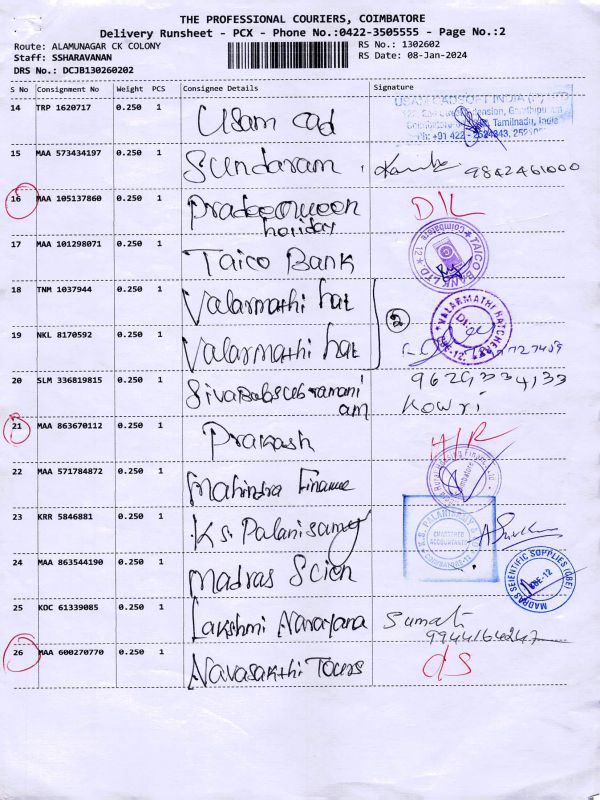 THE PROFESSIONAL COURIERS, COIMBATORE
Delivery Runsheet - PCX - Phone No.:0422-3505555 - Page No.:2
Route: ALAMUNAGAR CK COLONY
RS No.: 1302602
Staff: SSHARAVANAN
RS Date: 08-Jan-2024
DRS No.: DCJB130260202
S No Consignment No Weight PCS Consignee Details Signature
14 TRP 1620717 0.250 1 Usam cad
15 MAA 573434197 0.250 1 Sundaram 9842461000
16 MAA 105137860 0.250 1 D/L
holiday
COIMBATORE - 12
TAICO BANK LTD
17 MAA 101298071 0.250 1 Taico Bank
18 TNM 1037944 0.250 1 Valarmathi hat
2
VALARMATHI HATCHERY
19 NKL 8170592 0.250 1 Valarmathi hat
20 SLM 336819815 0.250 1 Sivabalasubramani
am Kowri
21 MAA 863670112 0.250 1 Prakash
22 MAA 571784872 0.250 1 Mahindra Finance
23 KRR 5846881 0.250 1 K.S. Palanisamy
K.S. PALANISAMY
CHARTERED
ACCOUNTANTS
COIMBATORE-12
24 MAA 863544190 0.250 1 Madras Scien
MADRAS SCIENTIFIC SUPPLIES (CBE)
CBE-12
25 KOC 61339085 0.250 1 Lakshmi Narayana Sumati
26 MAA 600270770 0.250 1 Navasakthi Tours ds